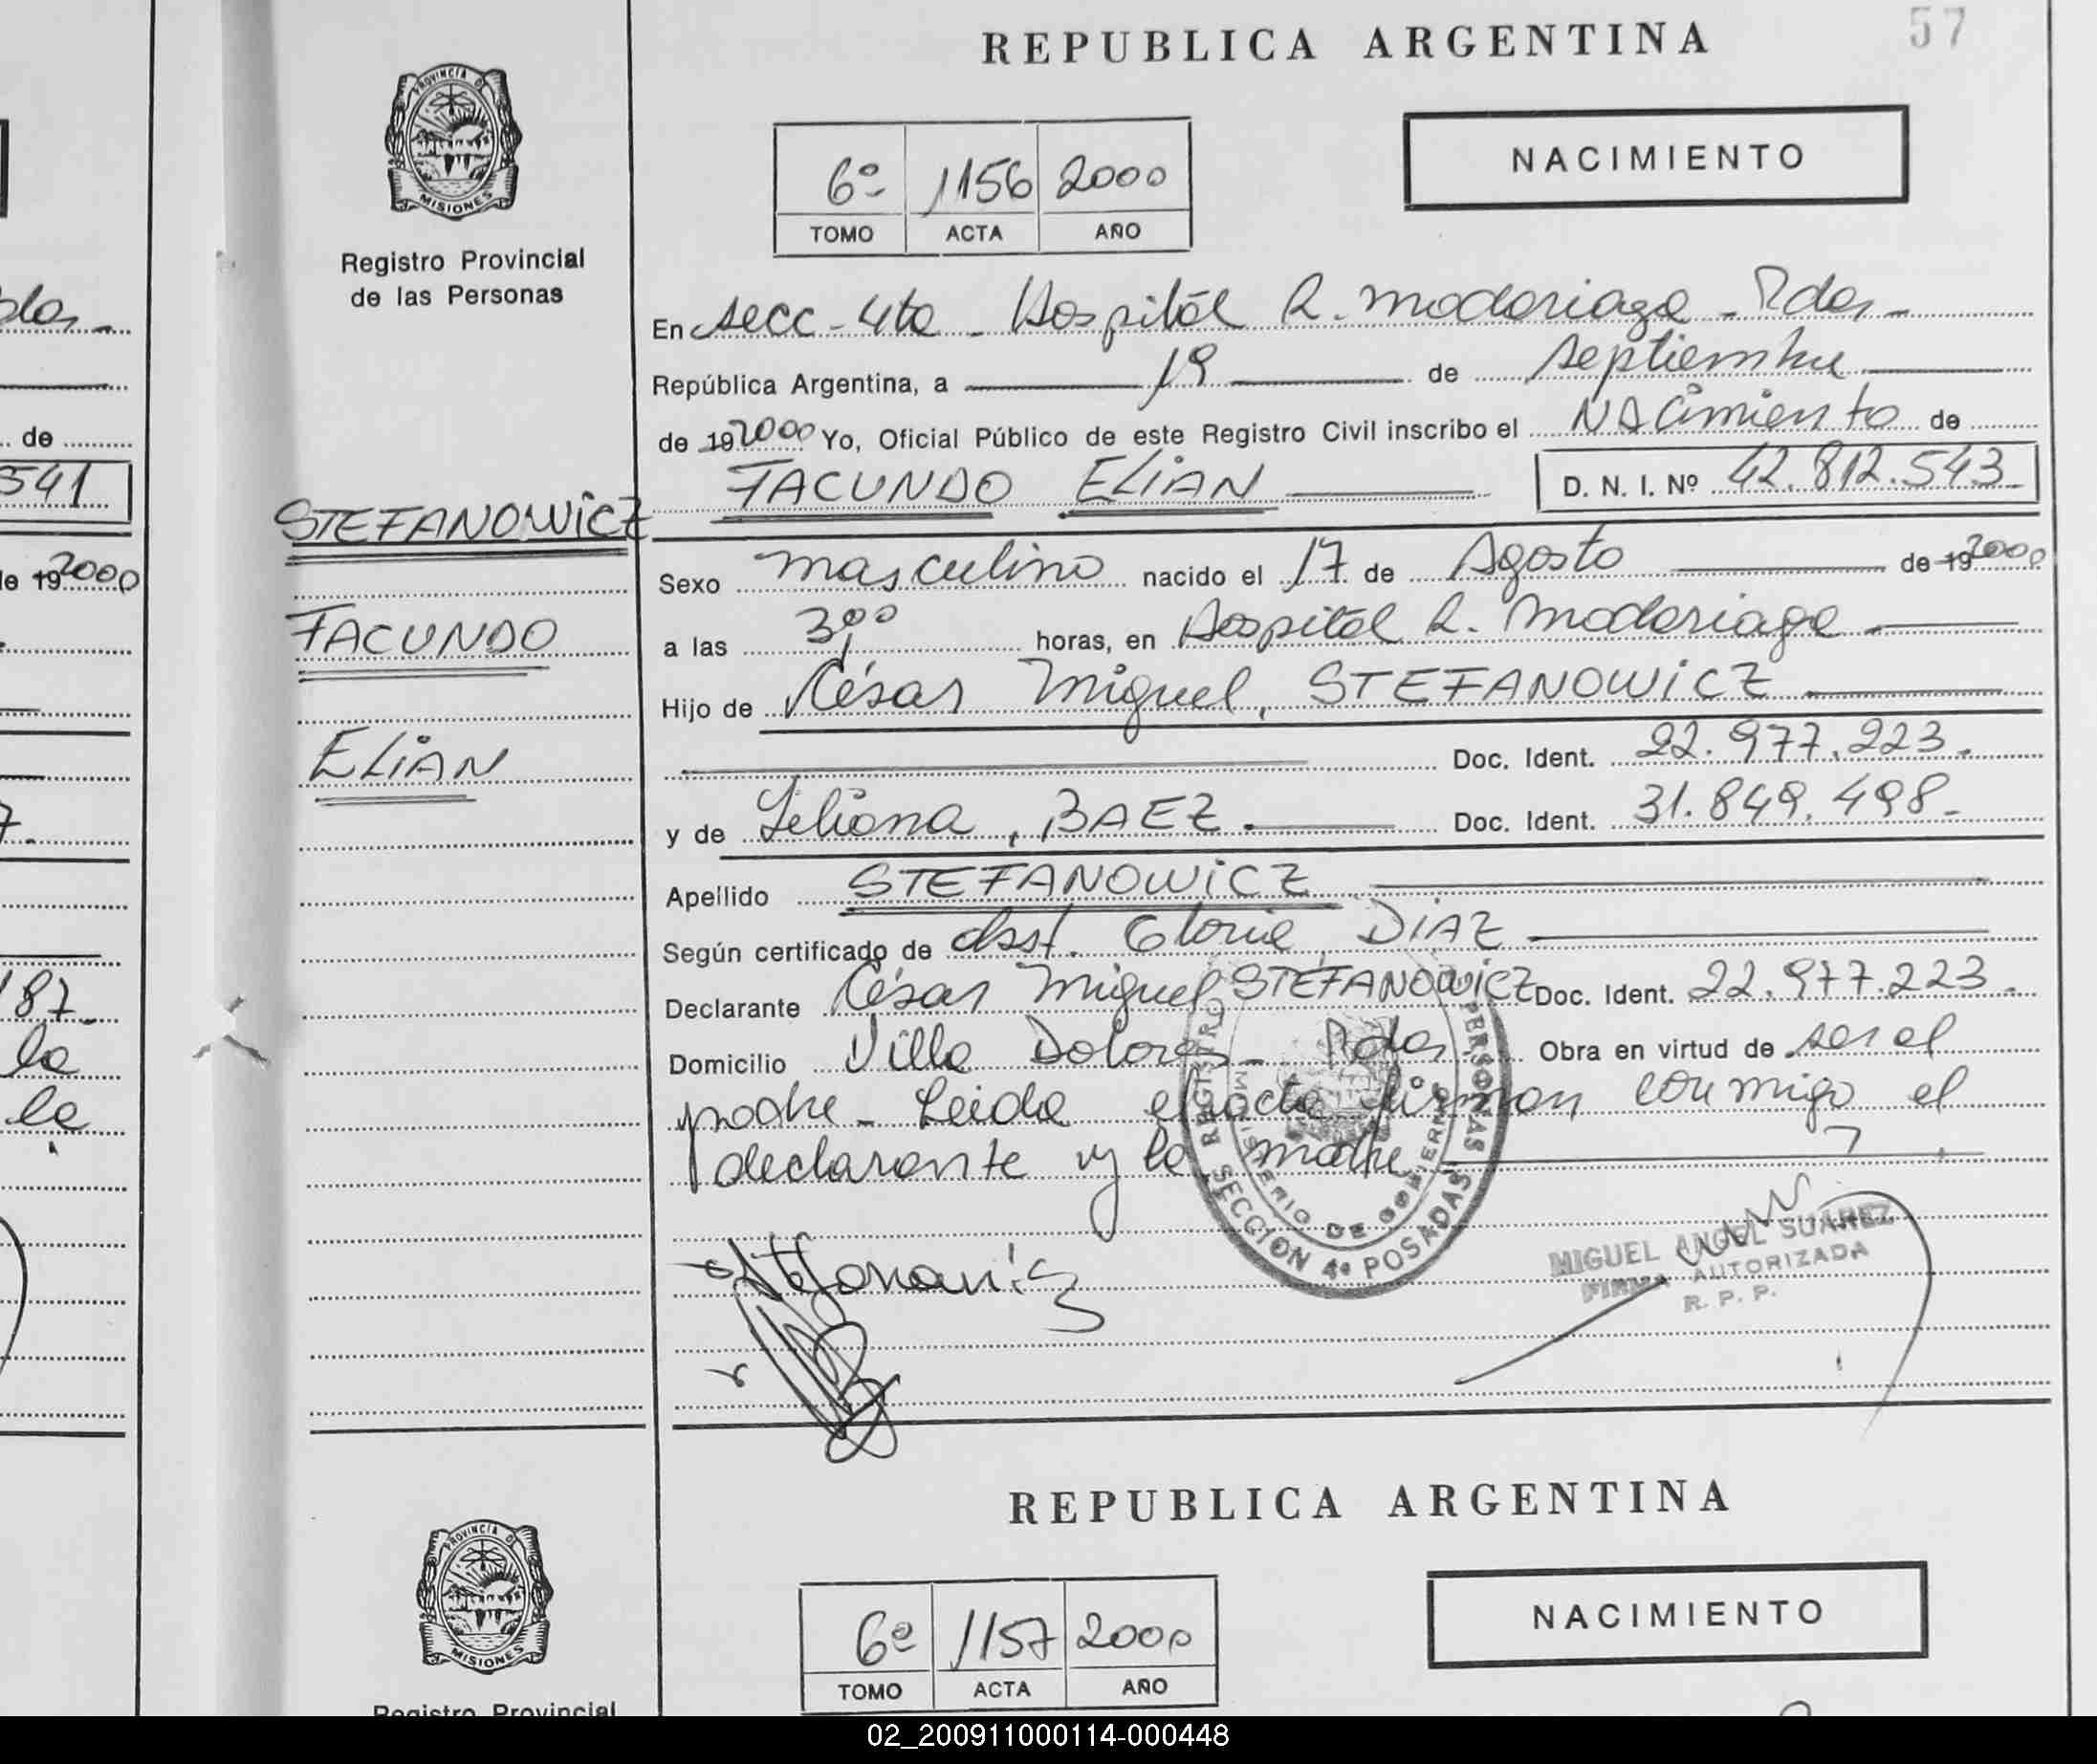 REPUBLICA ARGENTINA
57
PROVINCIA DE
MISIONES
Registro Provincial
de las Personas
6º 1156 2000
TOMO ACTA AÑO
NACIMIENTO
En secc - 4ta - Hospital R. Madariaga - Pdas -
República Argentina, a 19 de septiembre
de 192000 Yo, Oficial Público de este Registro Civil inscribo el NAcimiento de
FACUNDO ELiAN D. N. I. Nº 42.812.543
STEFANOWiCZ
FACUNDO
ELiAN
Sexo masculino nacido el 17 de Agosto de 192000
a las 3,00 horas, en Hospital R. Madariaga -
Hijo de César Miguel, STEFANOWiCZ
Doc. Ident. 22.977.223.
y de Liliana, BAEZ. Doc. Ident. 31.849.498-
Apellido STEFANOWiCZ
Según certificado de obst. Gloria DiAZ
Declarante César Miguel STEFANOWiCZ Doc. Ident. 22.977.223.
Domicilio Villa Dolores - Pdas. Obra en virtud de ser el
padre - Leida el acta firman conmigo el
declarante y la madre
REGISTRO PERSONAS
MINISTERIO DE GOBIERNO
SECCION 4ª POSADAS
MIGUEL ANGEL SUAREZ
FIRMA AUTORIZADA
R. P. P.
de
541
de 192000
187-
la
la
REPUBLICA ARGENTINA
PROVINCIA DE
MISIONES
Registro Provincial
6º 1157 2000
TOMO ACTA AÑO
NACIMIENTO
02_200911000114-000448